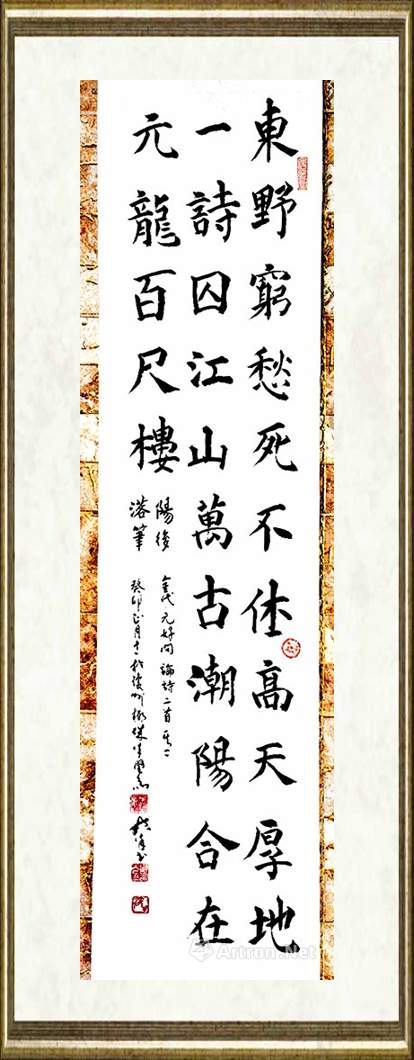 東野窮愁死不休高天厚地
一詩囚江山萬古潮陽合在
元龍百尺樓
陽後
落筆
金代元好問論詩二首其二
癸卯正月
Artron.Net